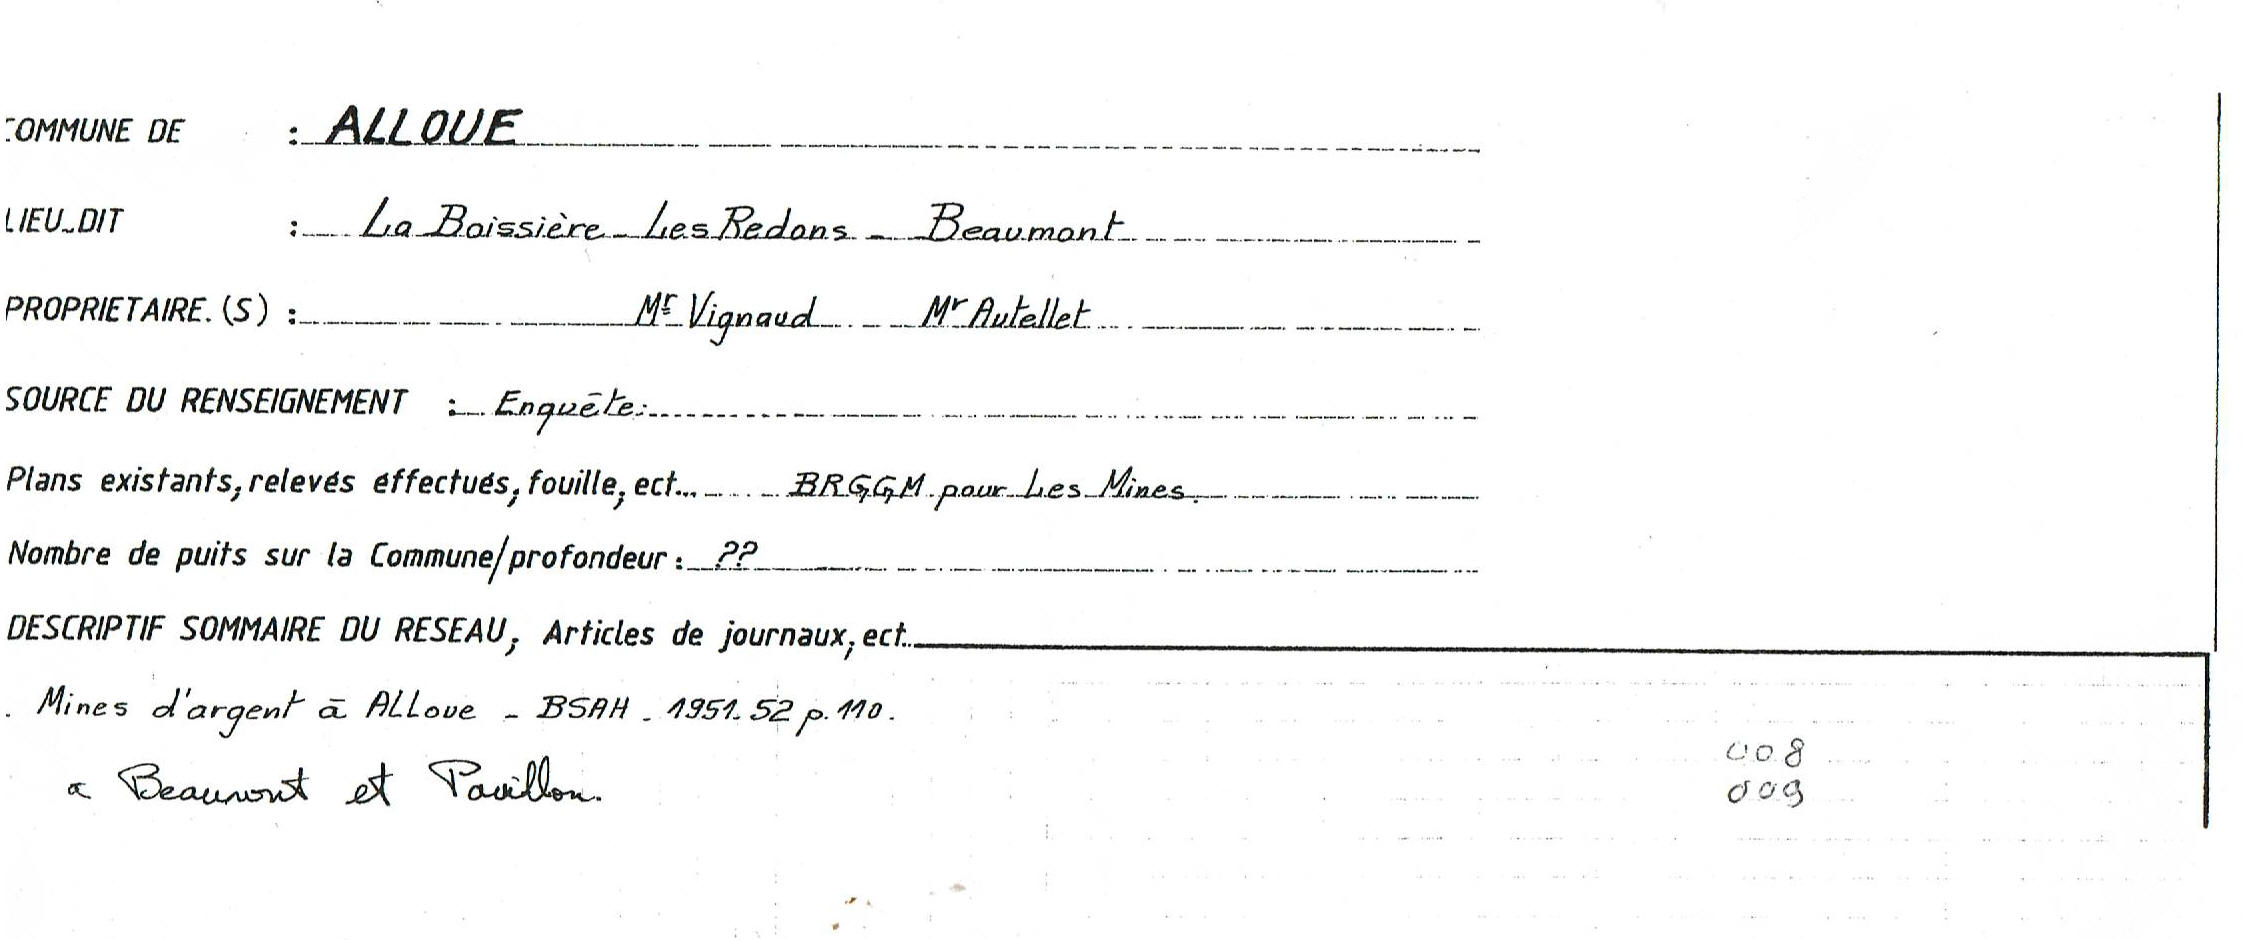 COMMUNE DE : ALLOUE
LIEU-DIT : La Boissière - Les Redons - Beaumont
PROPRIETAIRE.(S) : Mr Vignaud Mr Autellet
SOURCE DU RENSEIGNEMENT : Enquête.
Plans existants, relevés éffectués, fouille, ect... BRGGM pour Les Mines.
Nombre de puits sur la Commune/profondeur : ??
DESCRIPTIF SOMMAIRE DU RESEAU, Articles de journaux, ect..
. Mines d'argent à ALLoue - BSAH - 1951-52 p. 110.
008
à Beaumont et Pavillon.
009